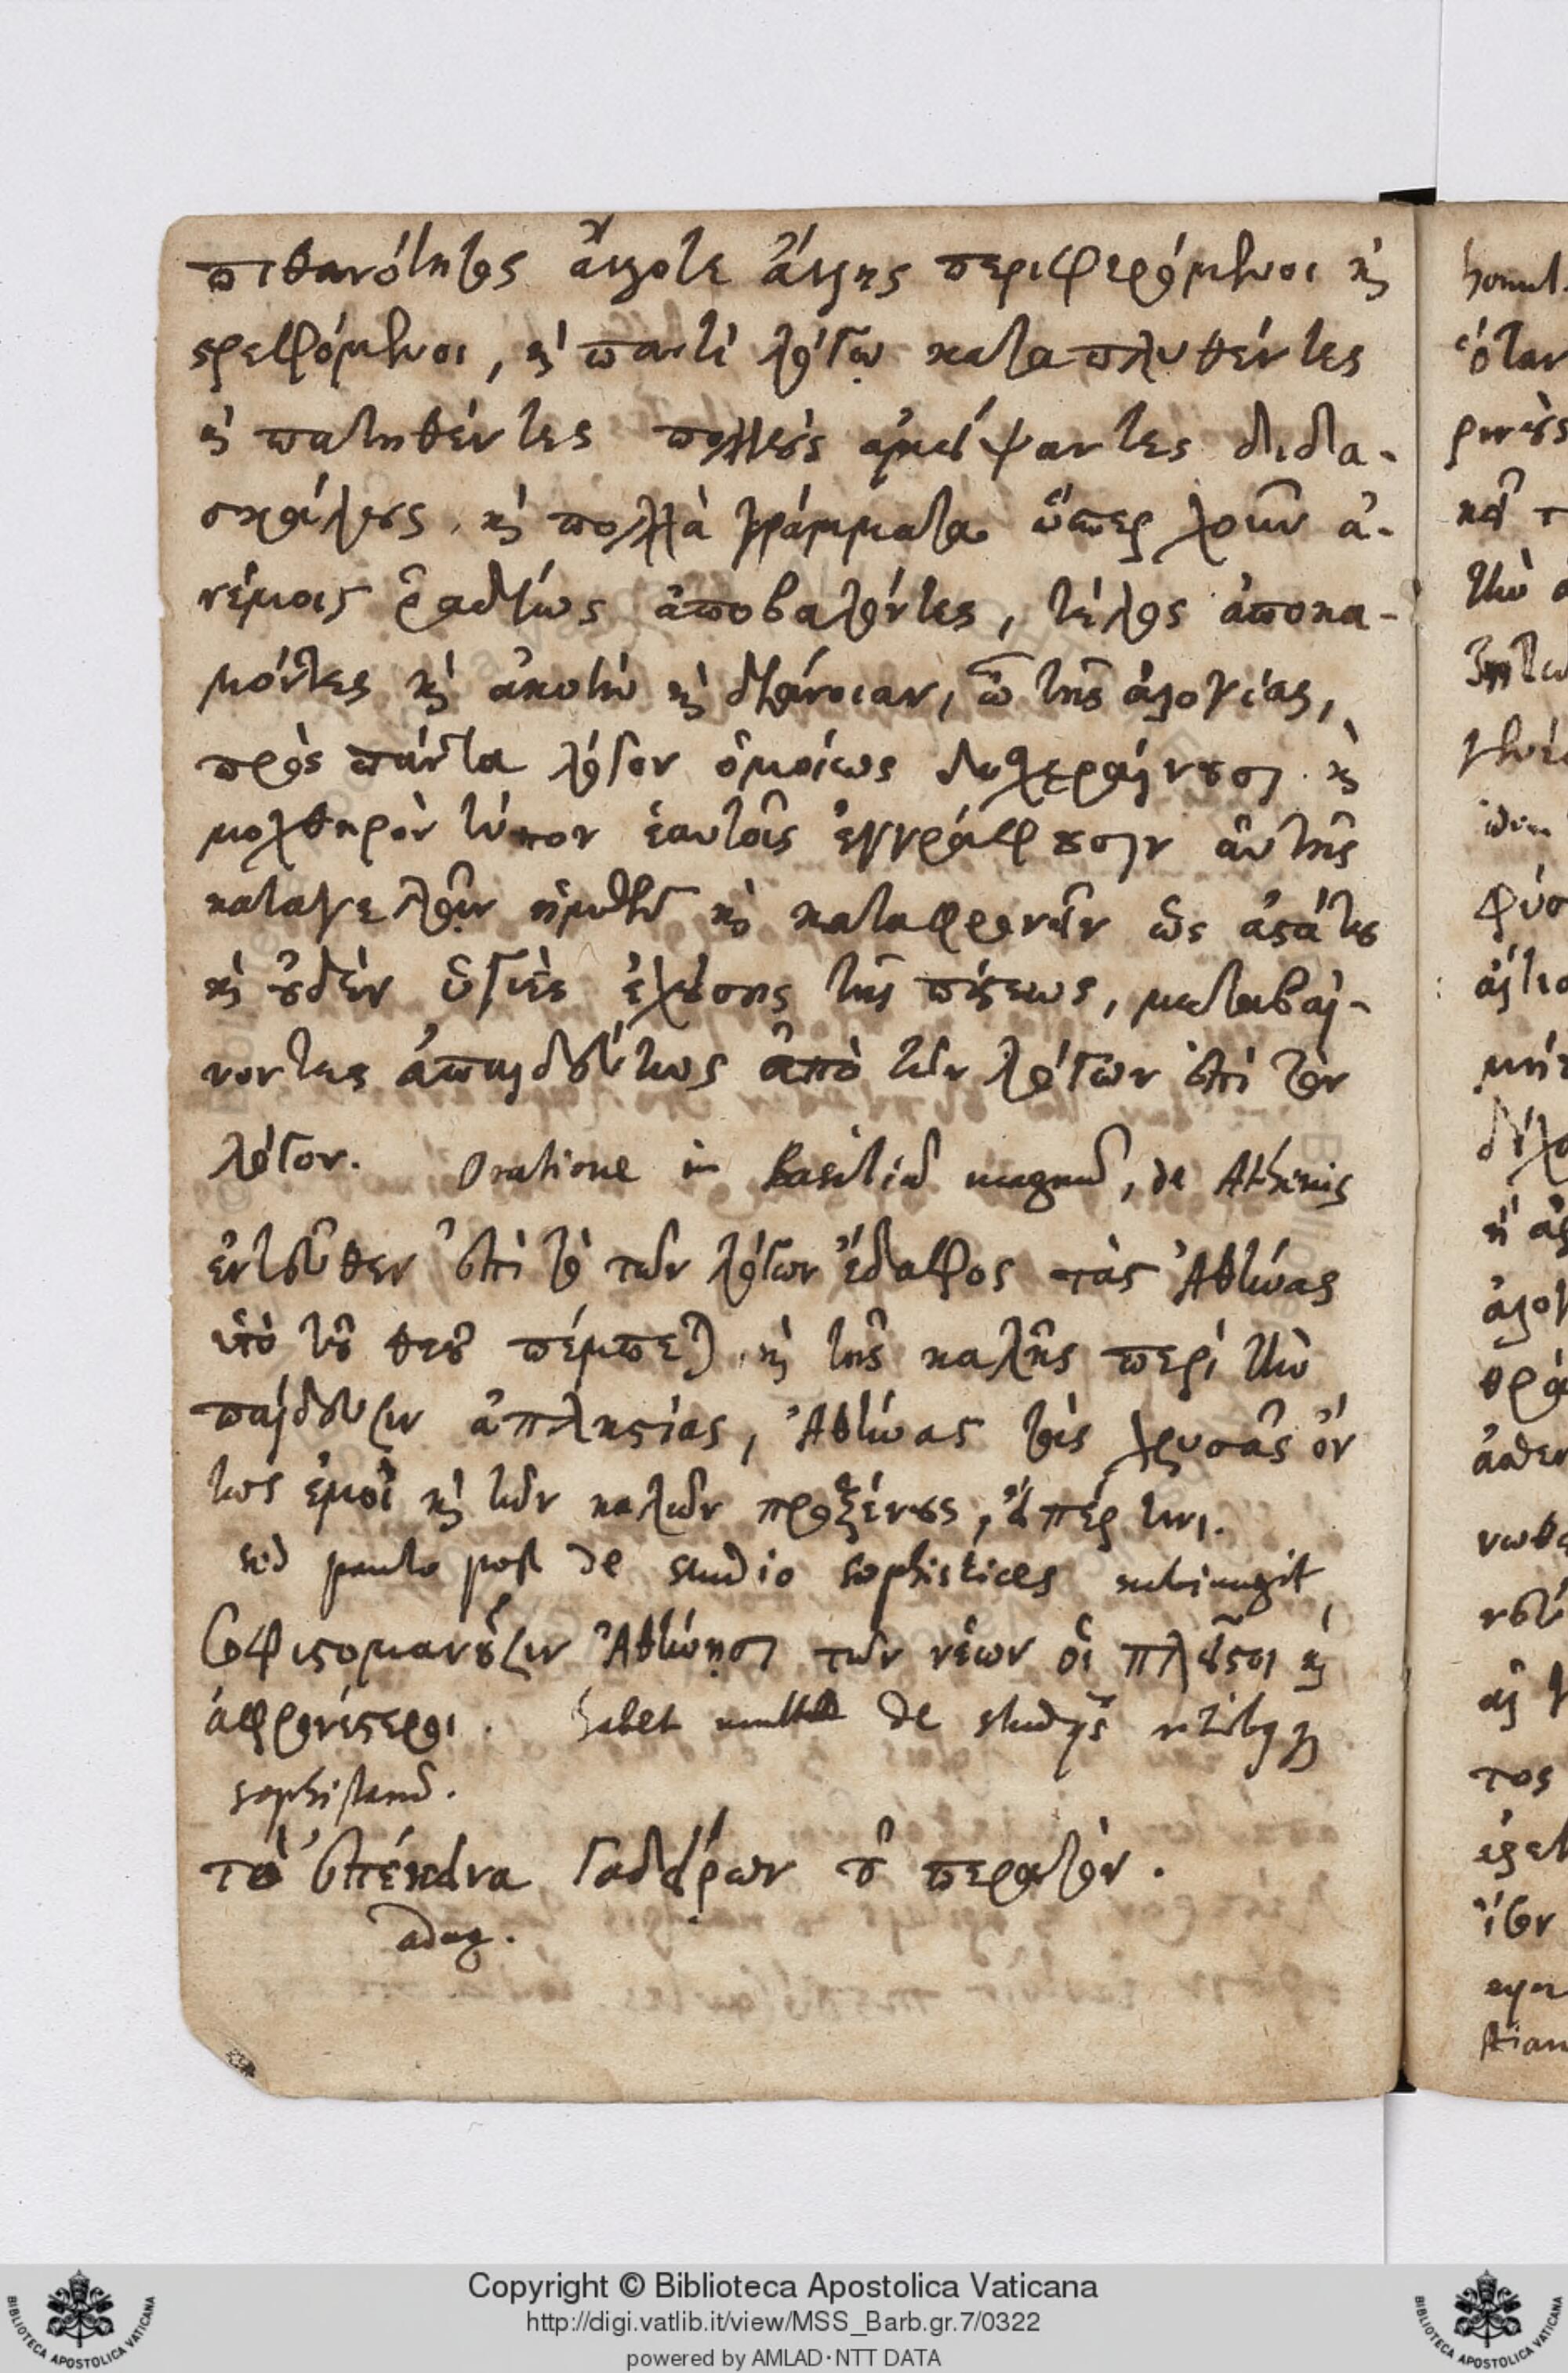 πιθανότητος ἄλλοτε ἄλλης περιφερόμενοι καὶ
στρεφόμενοι, καὶ παντὶ λόγῳ καταπλυθέντες
καὶ πατηθέντες πολλοὺς ἀμείψαντες διδα-
σκάλους. καὶ πολλὰ γράμματα ὥσπερ χοῦν ἀ-
νέμοις ῥαδίως ἀποβαλόντες, τέλος ἀποκα-
μόντες καὶ ἀκοὴν καὶ διάνοιαν, ὢ τῆς ἀλογίας,
πρὸς πάντα λόγον ὁμοίως δυσχεραίνουσι καὶ
μοχθηρὸν τύπον ἑαυτοῖς ἐγγράφουσιν αὐτῆς
καταγελᾷν ἡμῶν καὶ καταφρονεῖν ὡς ἀστάτου
καὶ οὐδὲν ὑγιὲς ἐχούσης τῆς πίστεως, μεταβαί-
νοντες ἀπαιδεύτως ἀπὸ τῶν λόγων ἐπὶ τὸν
λόγον. Oratione in Basiliũ magnũ, de Athenis
ἐντεῦθεν ἐπὶ τὸ τῶν λόγων ἔδαφος τὰς Ἀθήνας
ὑπὸ τοῦ θεοῦ πέμπεται. καὶ τῆς καλῆς περὶ τὴν
παίδευσιν ἀπληστίας, Ἀθήνας τὰς χρυσᾶς ὄν
τως ἐμοὶ καὶ τῶν καλῶν προξένους, εἴπέρ τινι.
sed paulo post de studio sophistices subiungit
Σοφιστομανοῦσιν Ἀθήνῃσι τῶν νέων οἱ πλεῖστοι καὶ
ἀφρονέστεροι. habet multa de studijs
sophistarũ.
τὰ ἐπέκεινα Γαδείρων οὐ περατὸν.
adag.
homil.
ὅταν
Copyright © Biblioteca Apostolica Vaticana
http://digi.vatlib.it/view/MSS_Barb.gr.7/0322
powered by AMLAD·NTT DATA
BIBLIOTECA APOSTOLICA VATICANA
BIBLIOTECA APOSTOLICA VATICANA